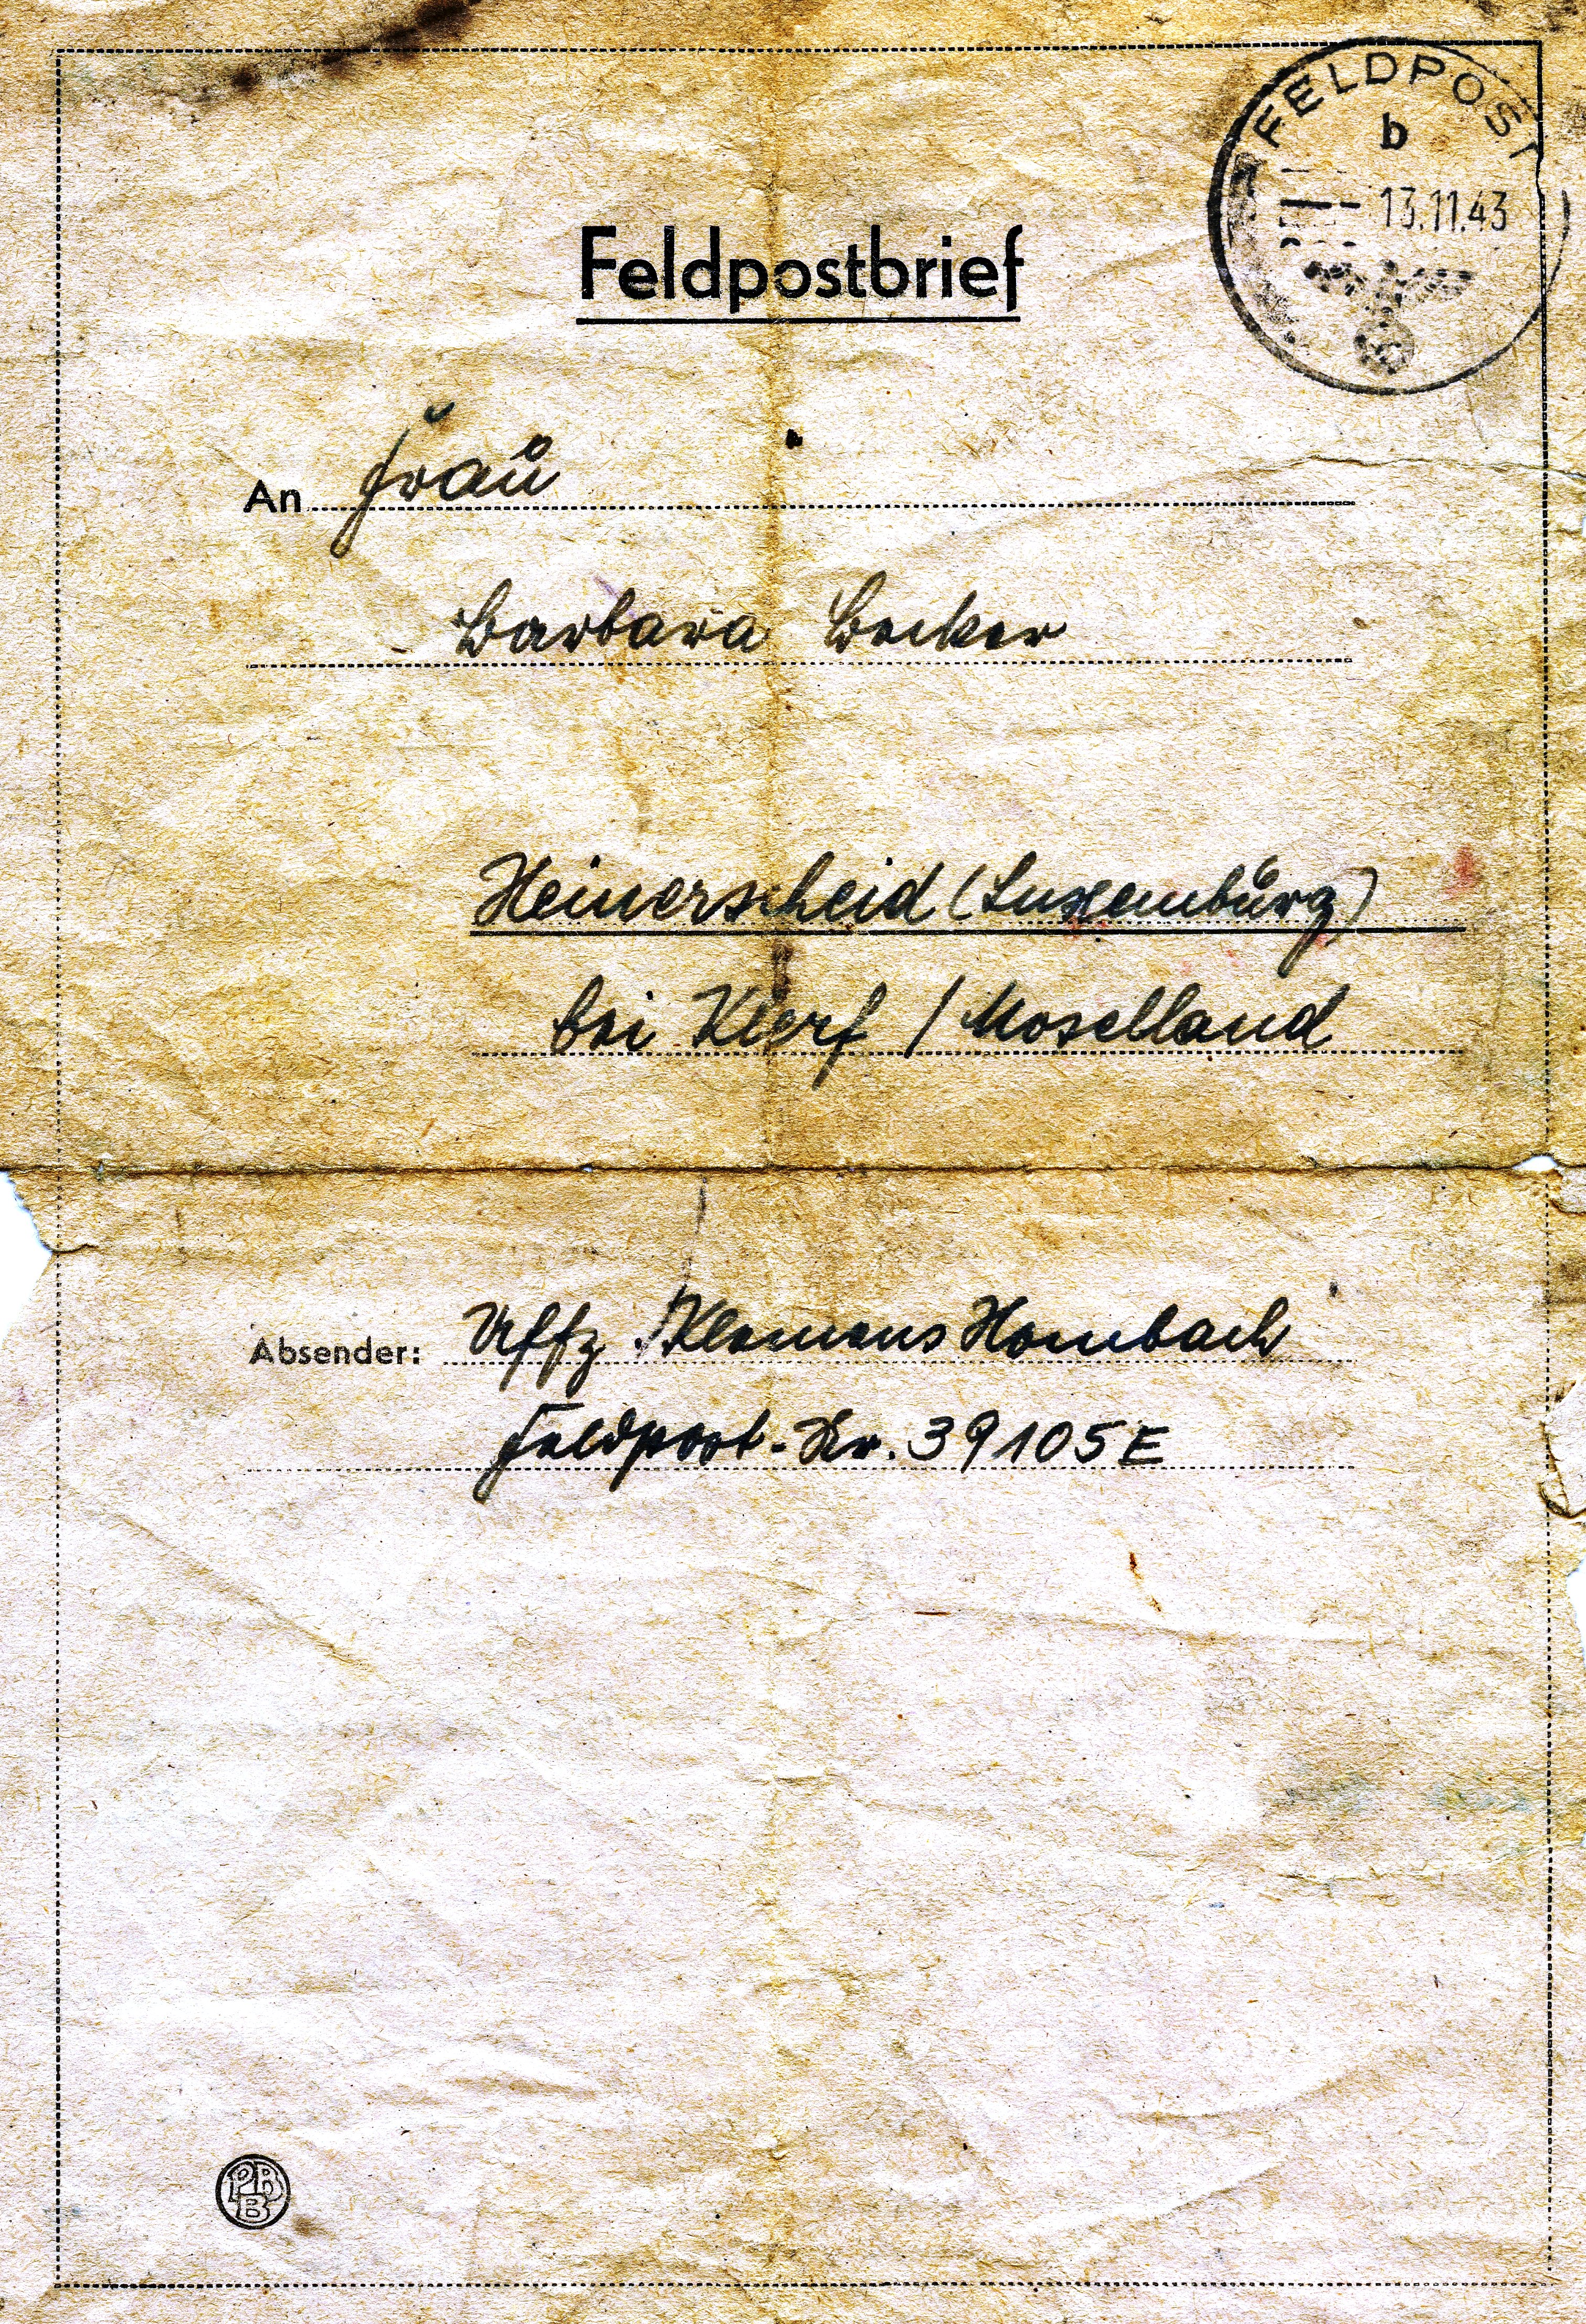 FELDPOST
b
13.11.43
Feldpostbrief
An Frau
Barbara Becker
Heinerscheid (Luxemburg)
bei Klerf / Moselland
Absender: Uffz. Klemens Hombach
Feldpost-Nr. 39105 E
PBB